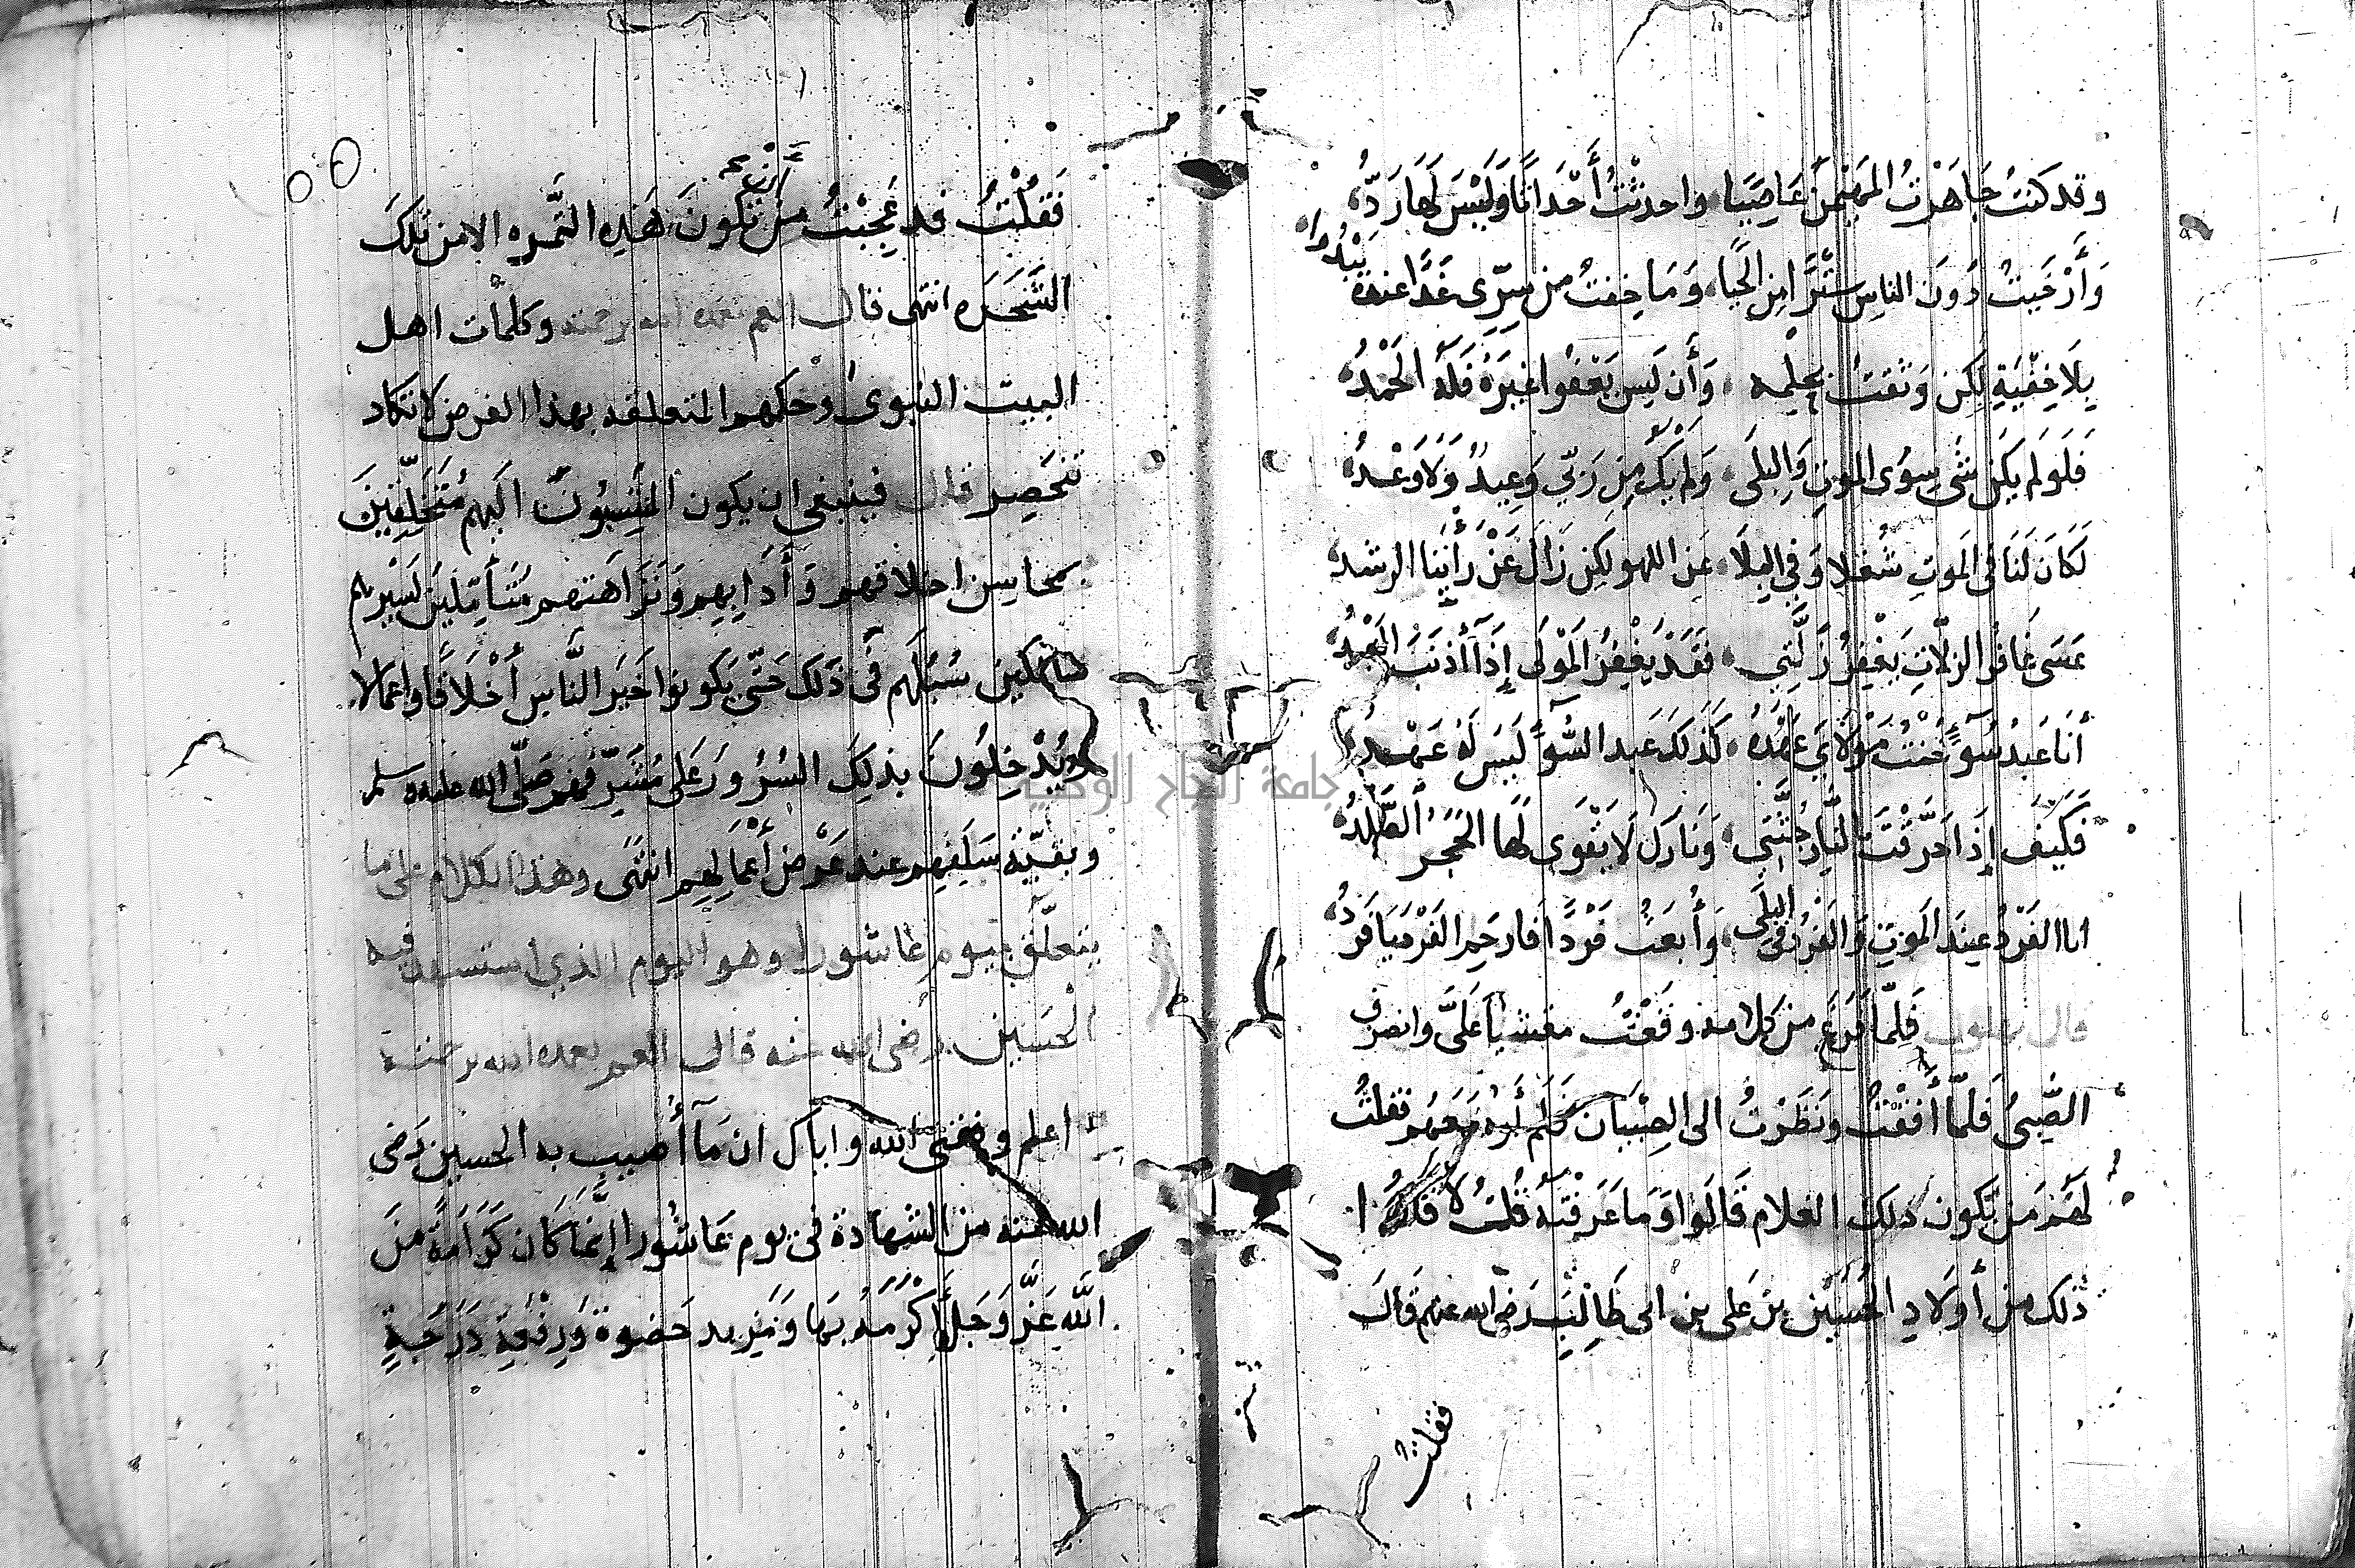 وقد كنتُ جَاهَرْتُ المهَيْمِنَ عَاصِيًا، واحدثْتُ أَحْدَاثًا وَلَيْسَ لَهَا رَدُّ،
وَأَرْخَيتُ دُونَ الناسِ سِتْرًا مِنَ الحَيَا، وَمَا خِفتُ مِن سِرِّى غَدًا عندهُ يَبْدُوا
بِلَا خِفْيَةٍ لَكِن وَثقتُ بحِلمِه، وَأَن لَيسَ يَعْفُوا غَيرَهُ فَلَهُ الحَمْدُ،
فَلَو لَم يَكُن شَىءٌ سِوَى الموتِ وَالبِلَى، وَلم يَكُ مِن رَبّي وَعِيدٌ وَلَا وَعْدُ،
لَكَانَ لَنَا فى الَموتِ شُغلا وَفي البِلَا، عَن اللهو لَكِن زَالَ عَنْ رَأيِنا الرشد
عَسَى غَافرُ الزلّاتِ يَغْفِرُ زَلَّتِي، فَقَدْ يَغْفِرُ المَوْلَى إِذَآ أَذنَبَ العَبْدُ،
أَنَا عَبدُ سُوءٍ خُنتُ مَوْلَايَ عَهْدَهُ، كَذَلكَ عَبد السُّوءِ لَيسَ لَهُ عَهْدُ،
فَكَيفَ إِذَا حَرَّقتَ بالنَّارِ جُثَّتِي، وَنَارُكَ لَا يَقْوَى لَهَا الحَجَرُ الصَّلْدُ
انا الفَرْدُ عِندَ المَوتِ وَالفَردُ فى البِلَى، وَأُبعَثُ فَرْدًا فَارحَمِ الفَرْدَ يَا فَردُ،
قال بهلول فَلمّا فَرَغ من كلامه وقَعْتُ مغشيا عَلَىَّ وانصرف
الصَّبِىُ فَلمّا أَفَقْتُ ونَظَرْتُ الى الصِبْيَان فَلَم أَرَهُ مَعَهُم فقلتُ
لَهُم مَن يَكُون ذلك الغلام قَالَوا وَمَا عَرَفْتَهُ قُلتُ لا قَالُوا
ذلك مِن أَولَادِ الحُسَيْن بن عَلى بن ابى طَالِبٍ رَضى الله عنهم قَالَ
فقلتُ
فَقُلْتُ قد عَجِبْتُ مِن أَيْنَ تكُونَ هَذِهِ الثَّمَره الا مِن تلكَ
الشَّجَرَه انتهى قال العم تغمده الله برحمته وكلمات اهل
البيت النبوى وَحكمهم المتعلقه بهذا الغرض لا تكاد
تنحَصِر قال فينبغى ان يكون المنتسِبُون اليهم مُتَخَلِّقينَ
بمحاسِن اخلاقهم وَأَدَابِهِم وَنَزَاهَتهم مُتَأمّلين لسَيرهم
سَالِكين سُبُلَهم فَى ذَلك حَتّى يَكونوا خَيرَ النَّاسِ أَخْلَاقًا واعمَالا
ويُدْخِلُونَ بذلِكَ السُرُورَ عَلى مُشَرِّفهم صَلّى الله عليه وسلم
وبقيّة سَلَفِهم عِند عَرْض أَعْمَالِهِم انتَهَى وهذا الكلام على ما
يتعلّق بيوم عاشورا وهو اليوم الذي استشهد فيه
الحسين رضى الله عنه قال العم تغمده الله برحمته
اعلم وفقنى الله واياك ان مَآ أُصِيبَ به الحسين رَضى
الله عنه من الشهادة في يوم عَاشُورا إنَّمَا كَان كَرَامَةً مِنَ
اللَّه عَزَّ وَجَلَّ أكْرَمَهُ بهَا وَمَزيد حَضوة وَرِفْعَة دَرَجَةٍ
جامعة النجاح الوطنية